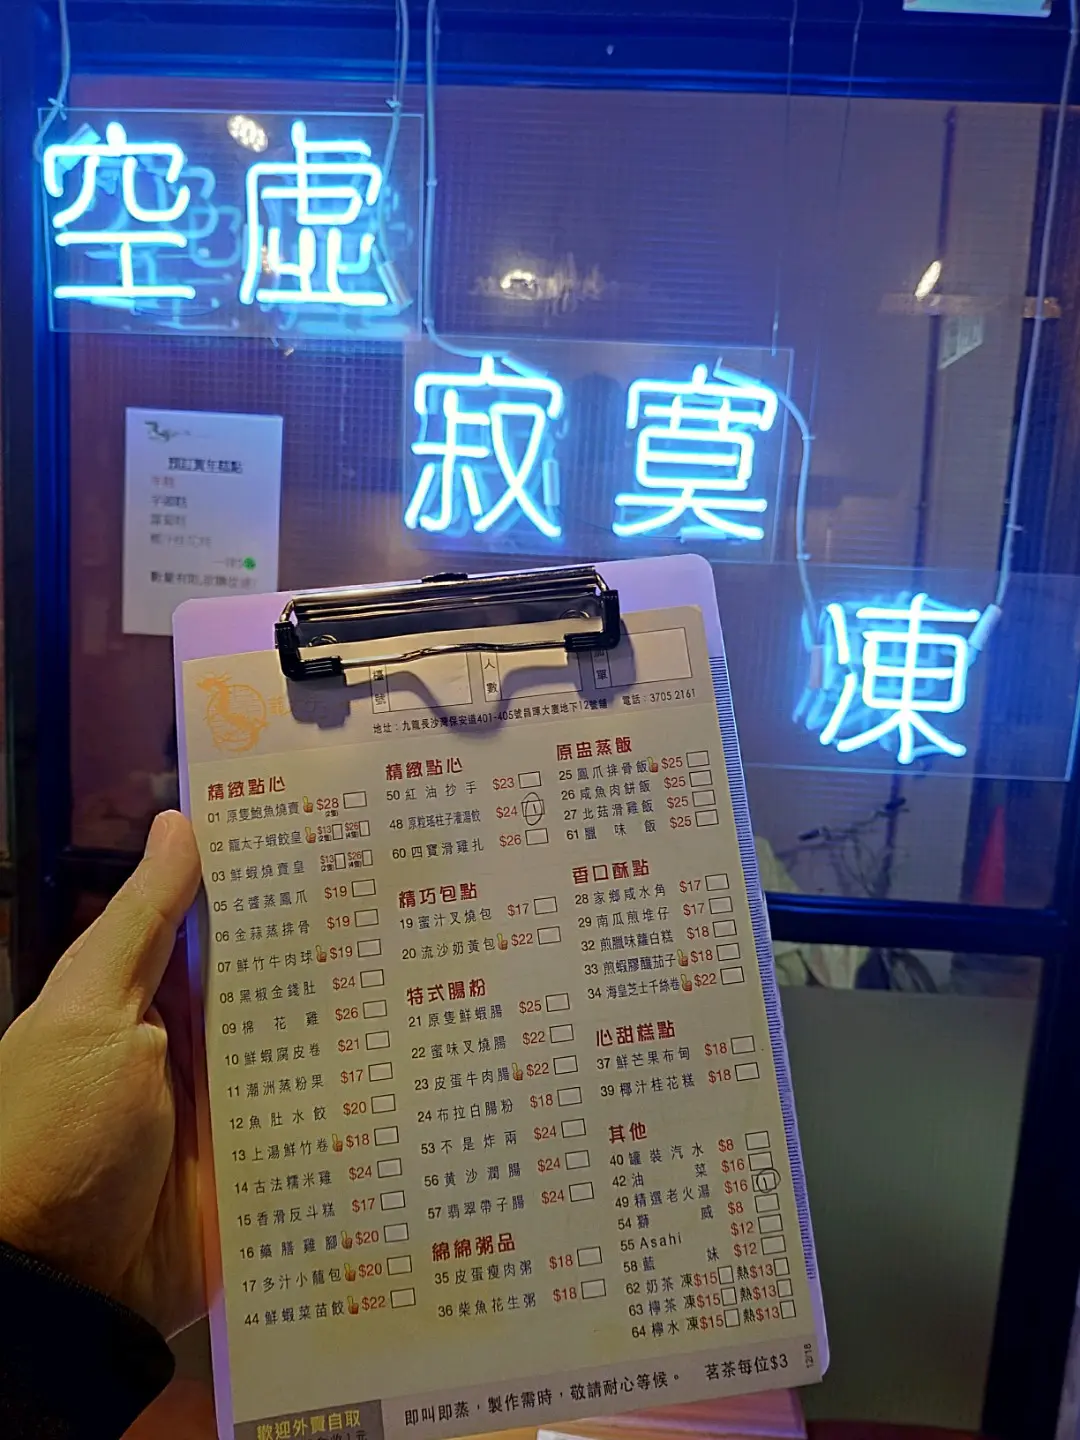 空虛
寂寞
凍
預訂賀年糕點
年糕
芋頭糕
蘿蔔糕
數量有限,欲購從速!
檯號
人數
地址：九龍長沙灣保安道401-405號昌暉大廈地下12號舖 電話：3705 2161
精緻點心
01 原隻鮑魚燒賣 $28 (2隻)
02 龍太子蝦餃皇 $13 (2隻) $26 (4隻)
03 鮮蝦燒賣皇 $13 (2隻) $26 (4隻)
05 名醬蒸鳳爪 $19
06 金蒜蒸排骨 $19
07 鮮竹牛肉球 $19
08 黑椒金錢肚 $24
09 棉花雞 $26
10 鮮蝦腐皮卷 $21
11 潮洲蒸粉果 $17
12 魚肚水餃 $20
13 上湯鮮竹卷 $18
14 古法糯米雞 $24
15 香滑反斗糕 $17
16 藥膳雞腳 $20
17 多汁小籠包 $20
44 鮮蝦菜苗餃 $22
精緻點心
50 紅油抄手 $23
48 原粒瑤柱子灌湯餃 $24 1
60 四寶滑雞扎 $26
精巧包點
19 蜜汁叉燒包 $17
20 流沙奶黃包 $22
特式腸粉
21 原隻鮮蝦腸 $25
22 蜜味叉燒腸 $22
23 皮蛋牛肉腸 $22
24 布拉白腸粉 $18
53 不是炸兩 $24
56 黃沙潤腸 $24
57 翡翠帶子腸 $24
綿綿粥品
35 皮蛋瘦肉粥 $18
36 柴魚花生粥 $18
原盅蒸飯
25 鳳爪排骨飯 $25
26 咸魚肉餅飯 $25
27 北菇滑雞飯 $25
61 臘味飯 $25
香口酥點
28 家鄉咸水角 $17
29 南瓜煎堆仔 $17
32 煎臘味蘿白糕 $18
33 煎蝦膠釀茄子 $18
34 海皇芝士千絲卷 $22
心甜糕點
37 鮮芒果布甸 $18
39 椰汁桂花糕 $18
其他
40 罐裝汽水 $8
42 油菜 $16
49 精選老火湯 $16 1
54 獅威 $8
55 Asahi $12
58 藍妹 $12
62 奶茶 凍$15 熱$13
63 檸茶 凍$15 熱$13
64 檸水 凍$15 熱$13
即叫即蒸，製作需時，敬請耐心等候。 茗茶每位$3
12/18
歡迎外賣自取